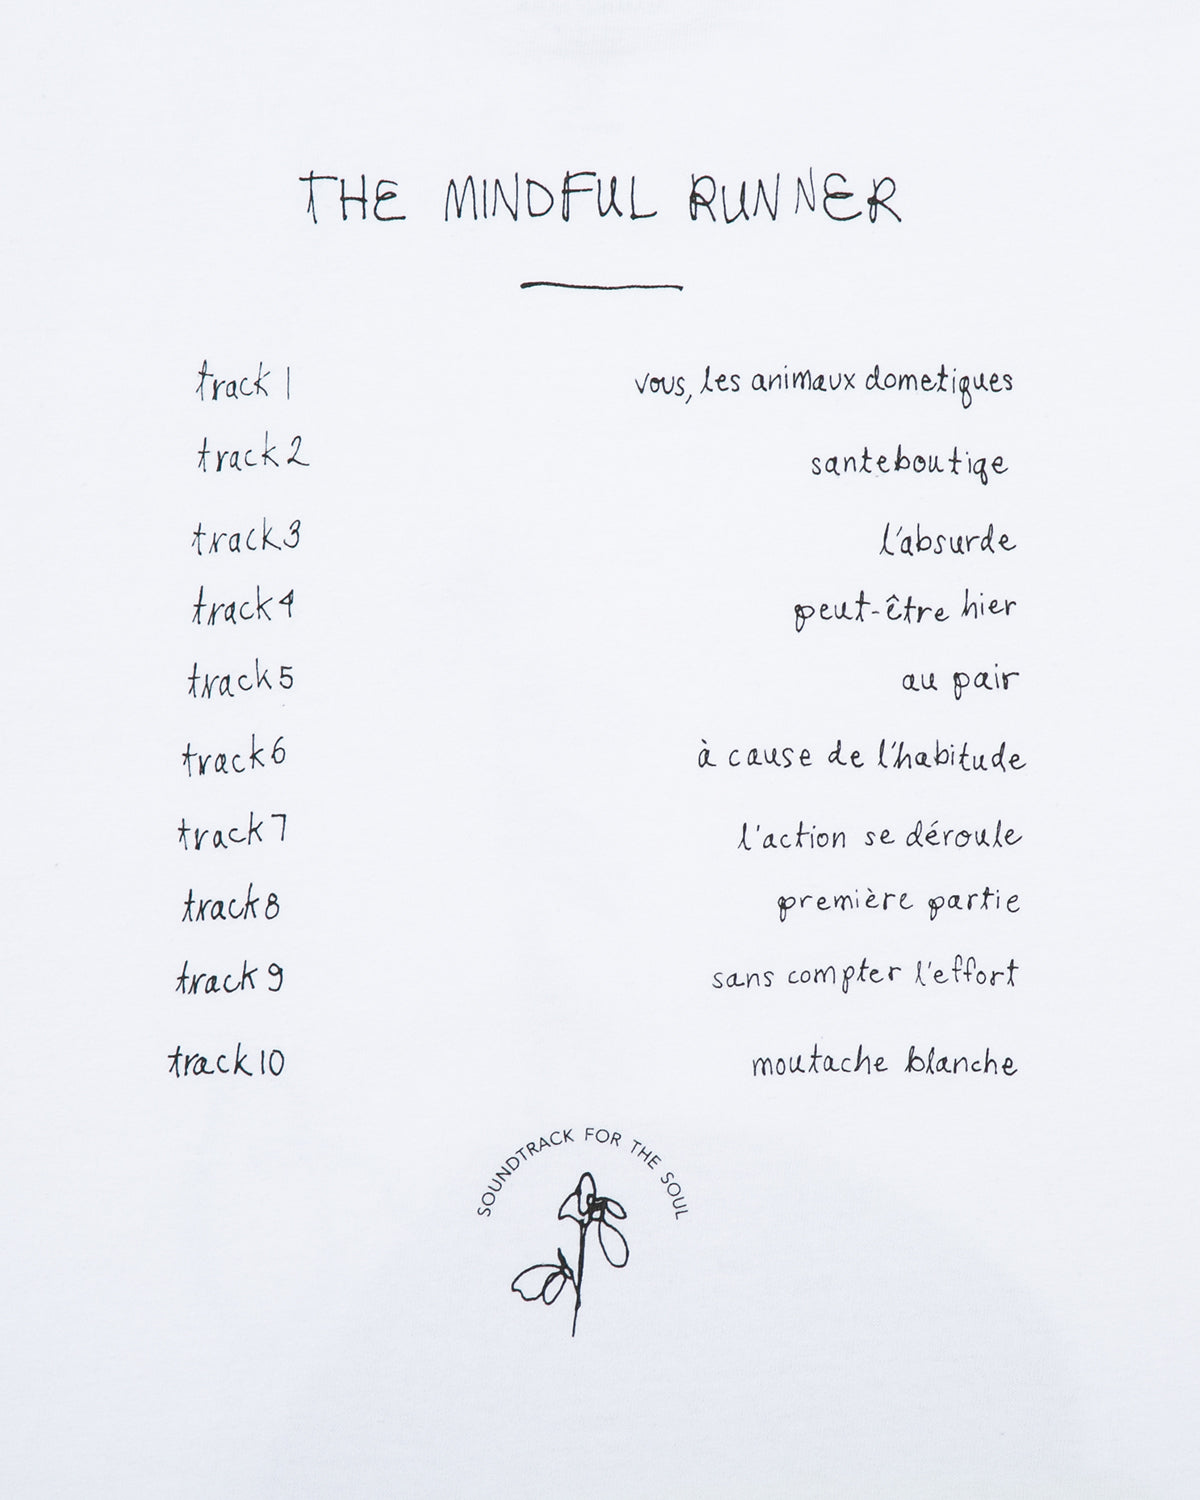 THE MINDFUL RUNNER
track 1 vous, les animaux dometiques
track 2 santeboutiqe
track 3 l'absurde
track 4 peut-être hier
track 5 au pair
track 6 à cause de l'habitude
track 7 l'action se déroule
track 8 première partie
track 9 sans compter l'effort
track 10 moutache blanche
SOUNDTRACK FOR THE SOUL